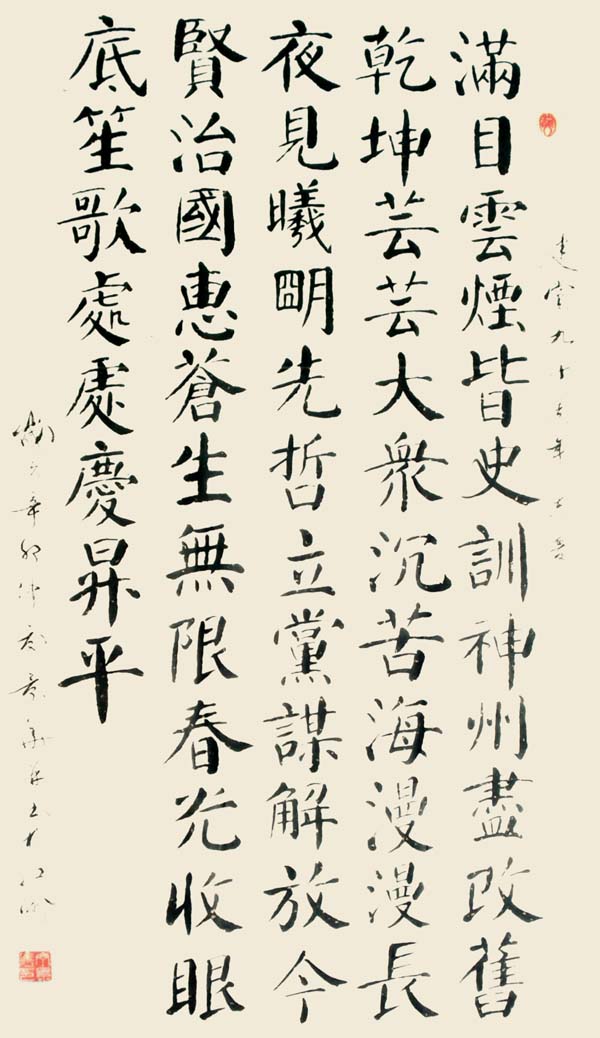 建党九十周年志
滿目雲煙皆史訓神州盡改舊
乾坤芸芸大衆沉苦海漫漫長
夜見曦朙先哲立黨謀解放今
賢治國惠蒼生無限春光收眼
底笙歌處處慶昇平
辛卯仲夏